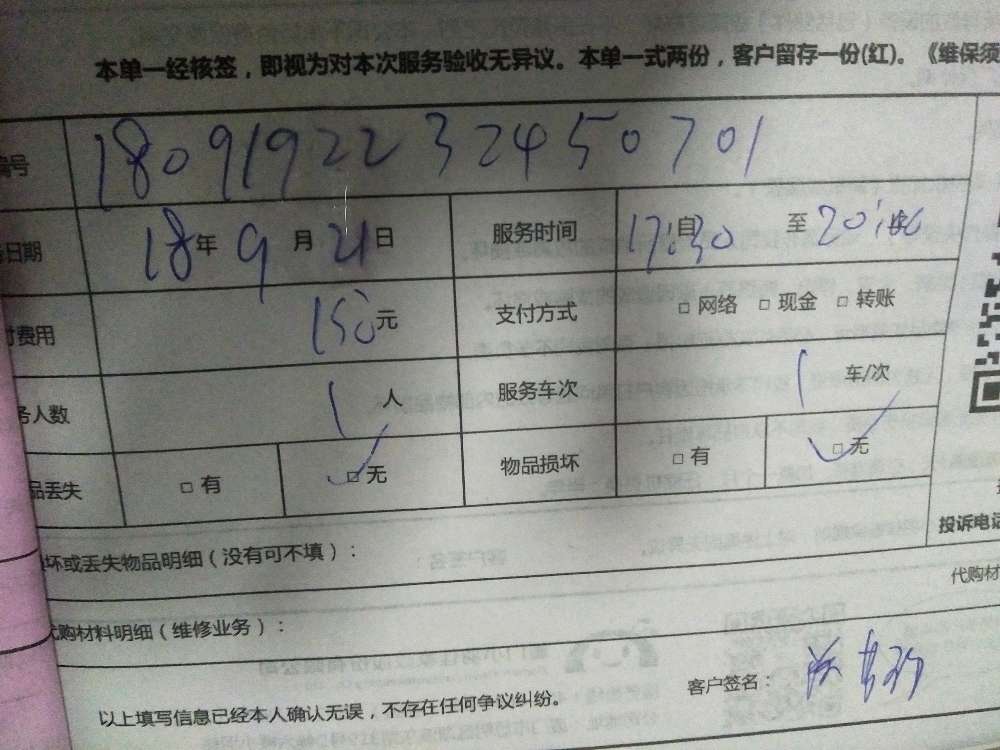 本单一经核签，即视为对本次服务验收无异议。本单一式两份，客户留存一份(红)。《维保须
编号 1809192232450701
日期 18年9月21日 服务时间 17:30自 至20:
费用 150元 支付方式 □ 网络 □ 现金 □ 转账
务人数 1人 服务车次 1车/次
品丢失 □ 有 □ 无 物品损坏 □ 有 □ 无
投诉电话
坏或丢失物品明细（没有可不填）：
代购材
代购材料明细（维修业务）：
客户签名：
以上填写信息已经本人确认无误，不存在任何争议纠纷。